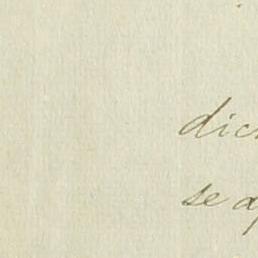 dic
se